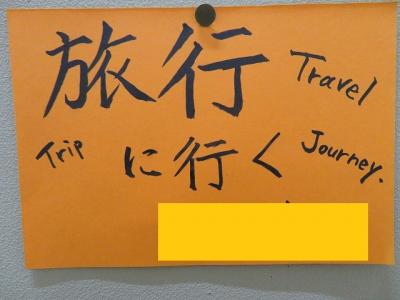 旅行 Travel
Trip に行く Journey.